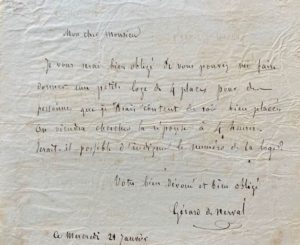 Mon cher Monsieur
Je vous serai bien obligé de vous pouvez me faire
donner une petite loge de 4 places pour des
personnes que je serais content de voir bien placées
On viendra chercher la réponse à 4 heures.
Serait-il possible d'indiquer le numéro de la loge?
Votre bien dévoué et bien obligé
Gérard de Nerval
Ce Mercredi 21 Janvier